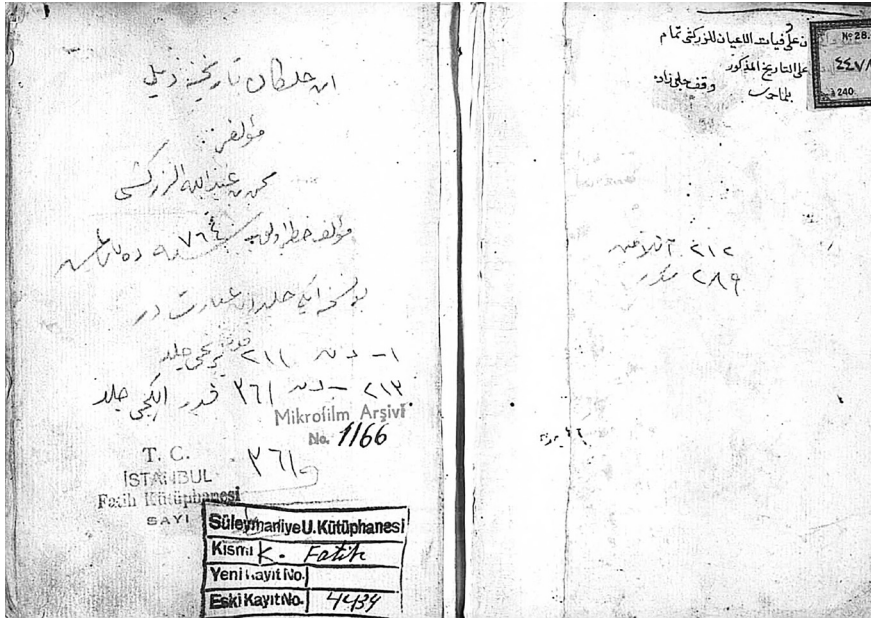 ابن خلكان تاريخنه ذيل
مؤلفى:
محمد بن عبدالله الزركشى
مؤلف خطيله ٧٦٤
بو نسخه ايكى جلددن عبارت در
١ - دن ٢١١ قدر برنجى جلد
٢١٣ - دن ٣٦١ قدر ايكنجى جلد
Mikrofilm Arşivi
No. 1166
٣٦١
T. C.
İSTANBUL
Fatih Kütüphanesi
SAYI
Süleymaniye U. Kütüphanesi
Kısmı K. Fatih
Yeni Kayıt No.
Eski Kayıt No. 4434
على وفيات الاعيان للزركشى تمام
على التاريخ المذكور
وقف چلبى زاده
No 28.
٤٤٧٨
a 240
٢١٢
٢٨٩ مكرر